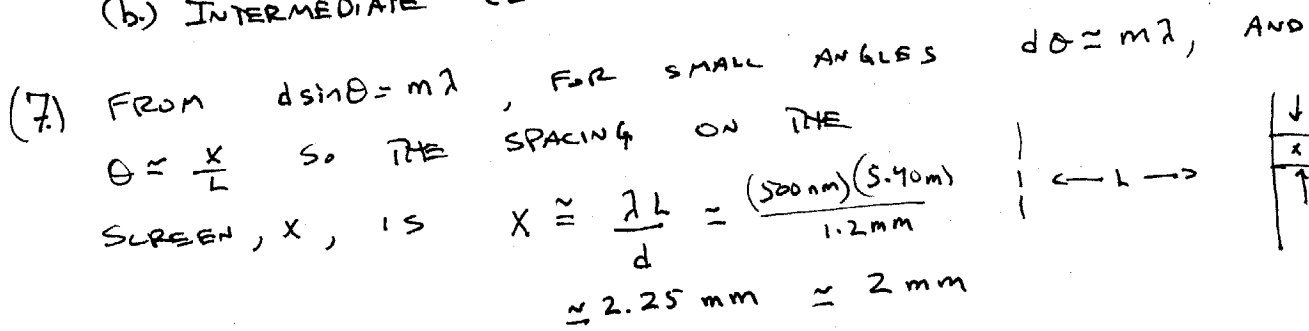 (b.) INTERMEDIATE
(7.) FROM d sin θ = m λ , FOR SMALL ANGLES d θ ≅ m λ, AND
θ ≅ x/L SO THE SPACING ON THE
SCREEN, X, IS X ≅ λL/d ≅ (500 nm)(5.40m)/1.2mm ← L → ↓ x ↑
≅ 2.25 mm ≅ 2 mm